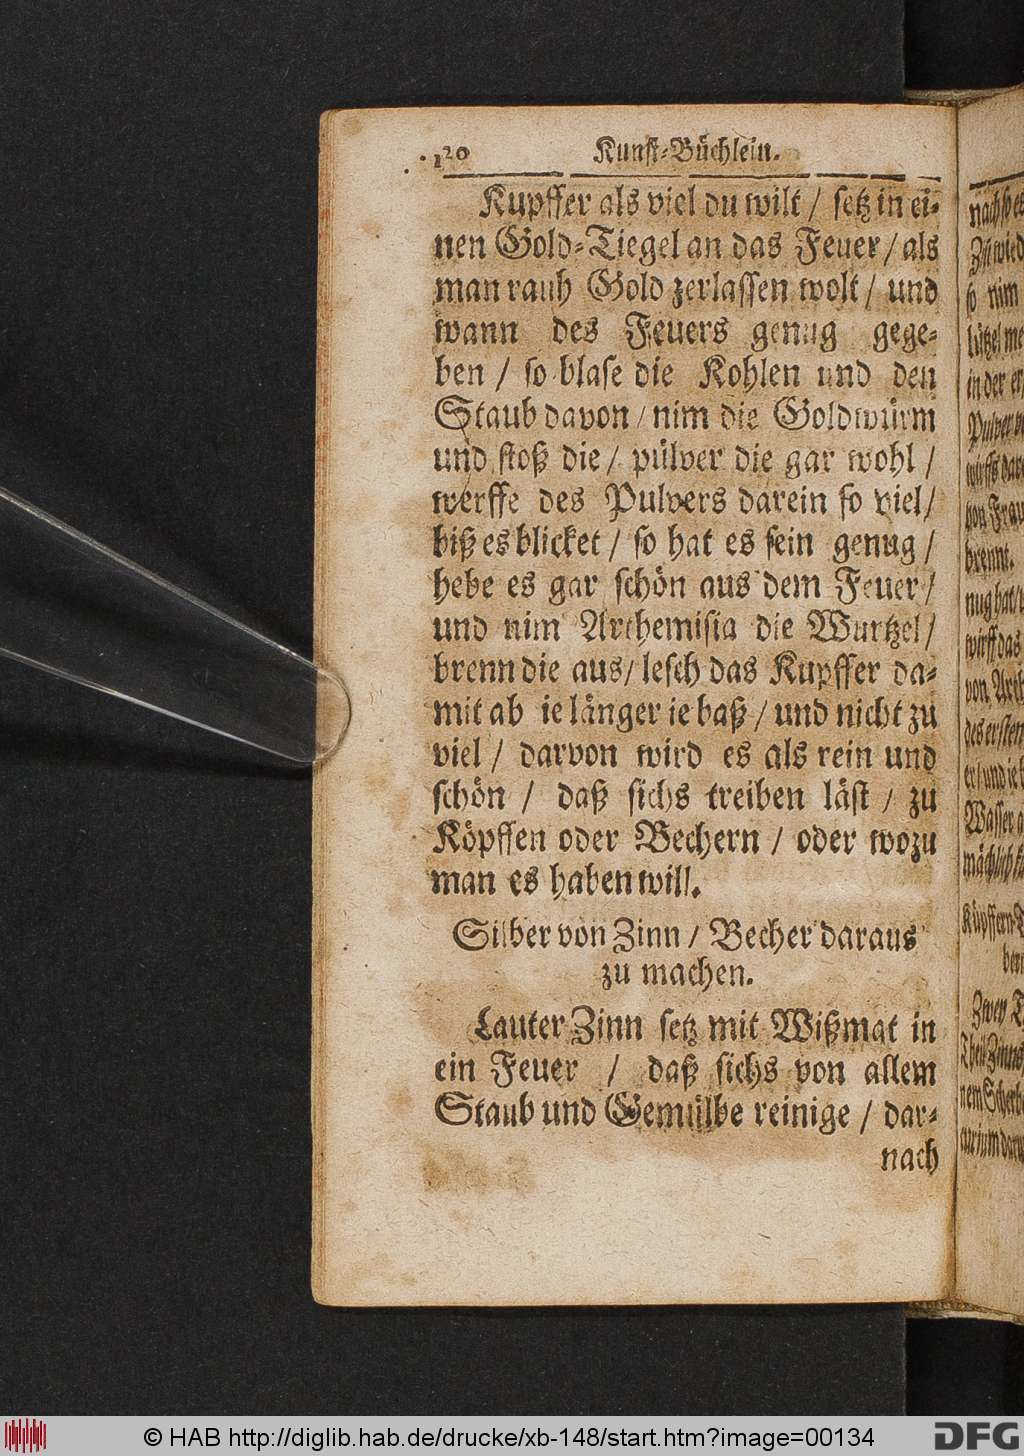 120 Kunst-Büchlein.
Kupffer als viel du wilt / setz in ei-
nen Gold-Tiegel an das Feuer / als
man rauh Gold zerlassen wolt / und
wann des Feuers genug gege-
ben / so blase die Kohlen und den
Staub davon / nim die Goldwürm
und stoß die / pülver die gar wohl /
werffe des Pulvers darein so viel /
biß es blicket / so hat es sein genug /
hebe es gar schön aus dem Feuer /
und nim Arthemisia die Wurtzel /
brenn die aus / lesch das Kupffer da-
mit ab ie länger ie baß / und nicht zu
viel / darvon wird es als rein und
schön / daß sichs treiben läst / zu
Köpffen oder Bechern / oder wozu
man es haben will.
Silber von Zinn / Becher daraus
zu machen.
Lauter Zinn setz mit Wißmat in
ein Feuer / daß sichs von allem
Staub und Gemülbe reinige / dar-
nach
so nim
in der
brennt.
wirff das
des ersten
Zwey
© HAB http://diglib.hab.de/drucke/xb-148/start.htm?image=00134
DFG